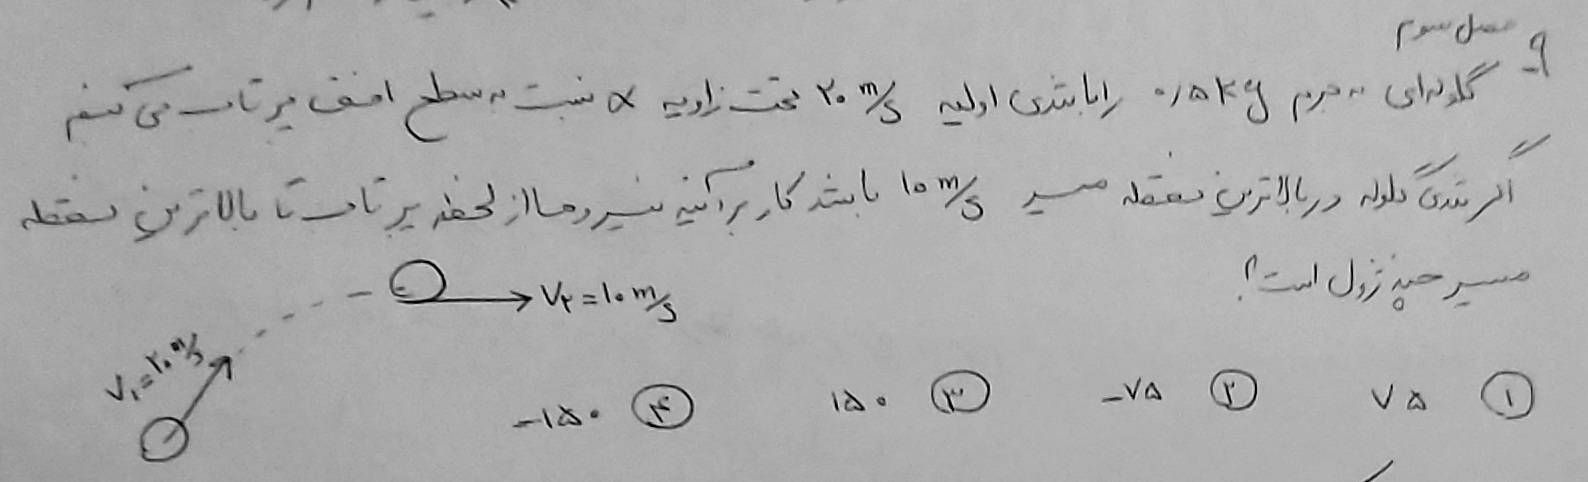 فصل سوم
۹- گلوله‌ای به جرم ۰/۵kg را با تندی اولیه ۲۰ m/s تحت زاویه α نسبت به سطح افق پرتاب می کنیم
اگر تندی گلوله در بالاترین نقطه مسیر ۱۰ m/s باشد کار برآیند نیروها از لحظه پرتاب تا بالاترین نقطه
مسیر چند ژول است؟
V₂=۱۰ m/s
V₁=۲۰ m/s
۱ ۷۵ ۲ -۷۵ ۳ ۱۵۰ ۴ -۱۵۰